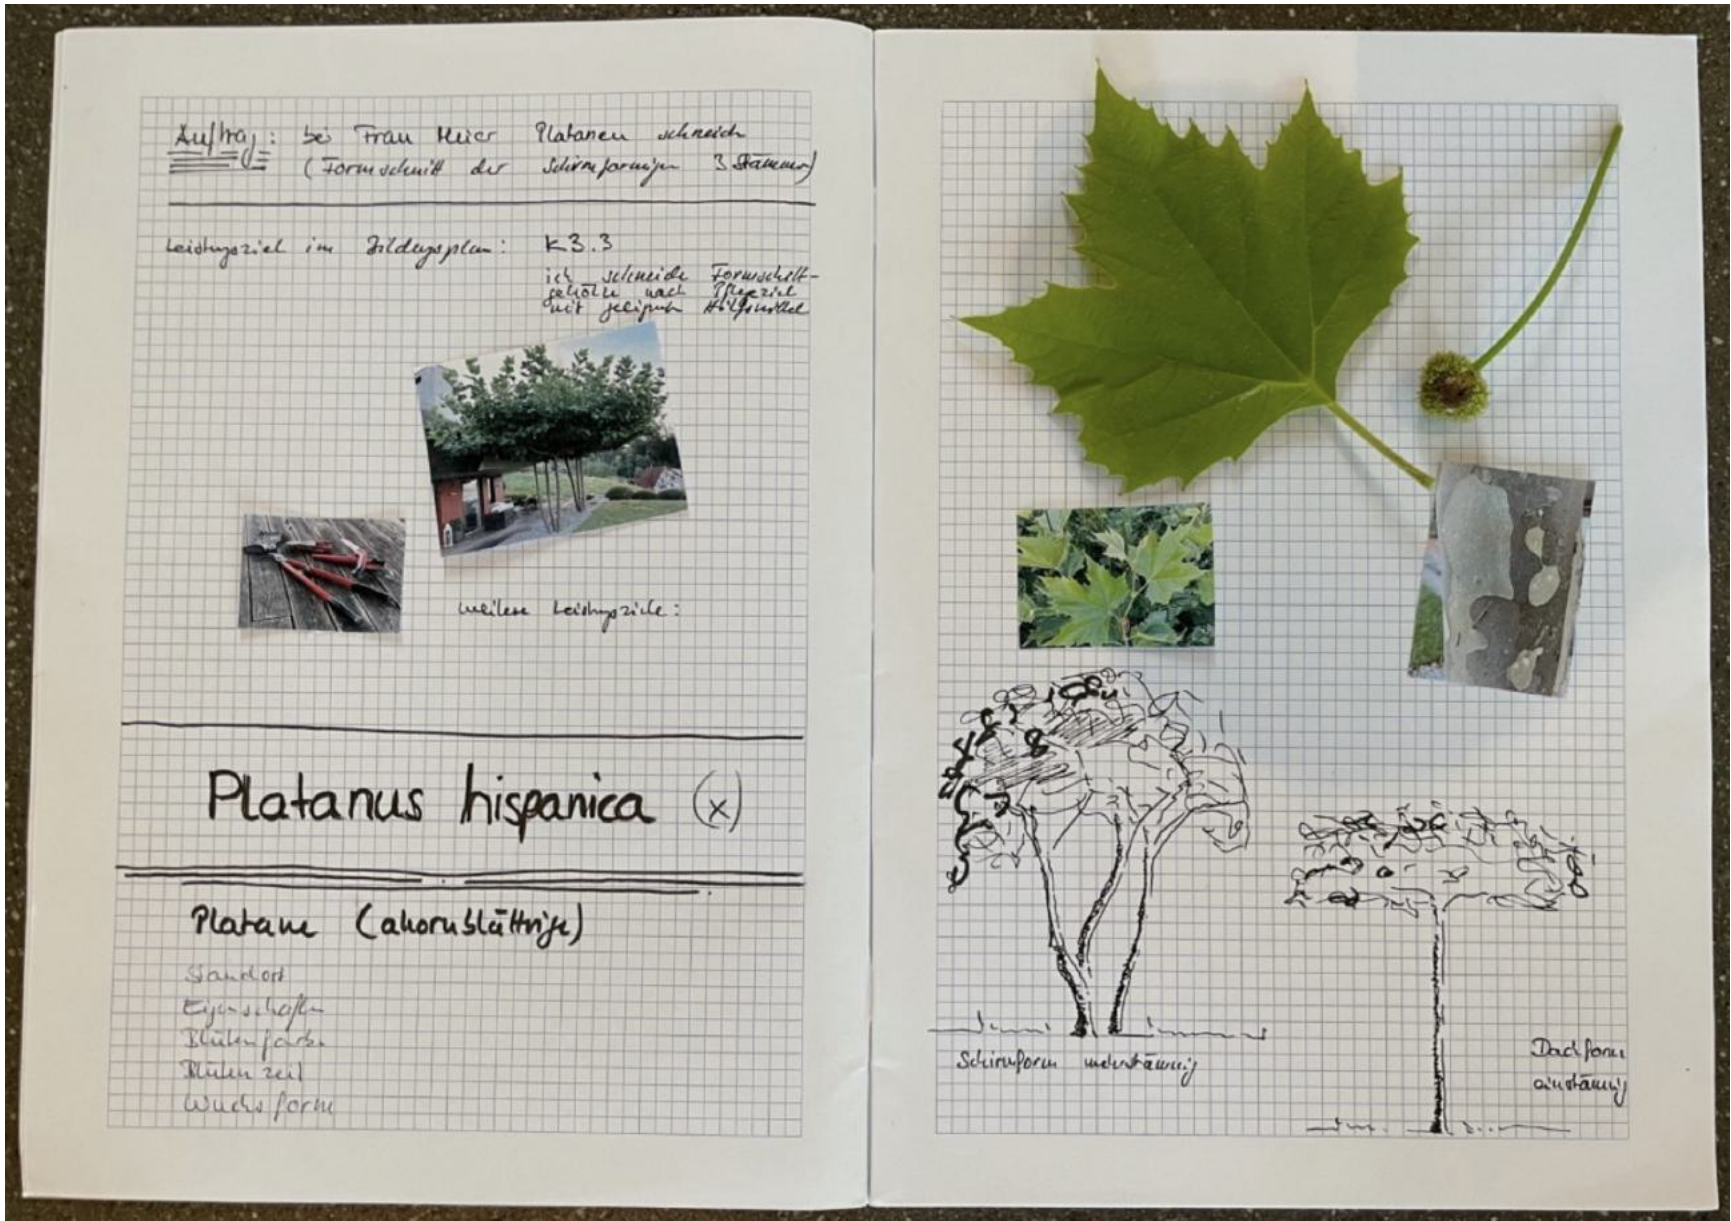 Auftrag: bei Frau Meier Platanen schneid
(Formschnitt der Schirmförmigen 3 Stämmer)
Leistungsziel im Bildungsplan: K3.3
ich schneide Formschnitt-
gehölze nach Pflegeziel
mit Hilfsmittel
weitere Leistungsziele:
Platanus hispanica (x)
Platane (ahornblättrige)
Standort
Eigenschaften
Blütenfarbe
Blütenzeit
Wuchsform
Schirmform mehrstämmig
Dachform
einstämmig